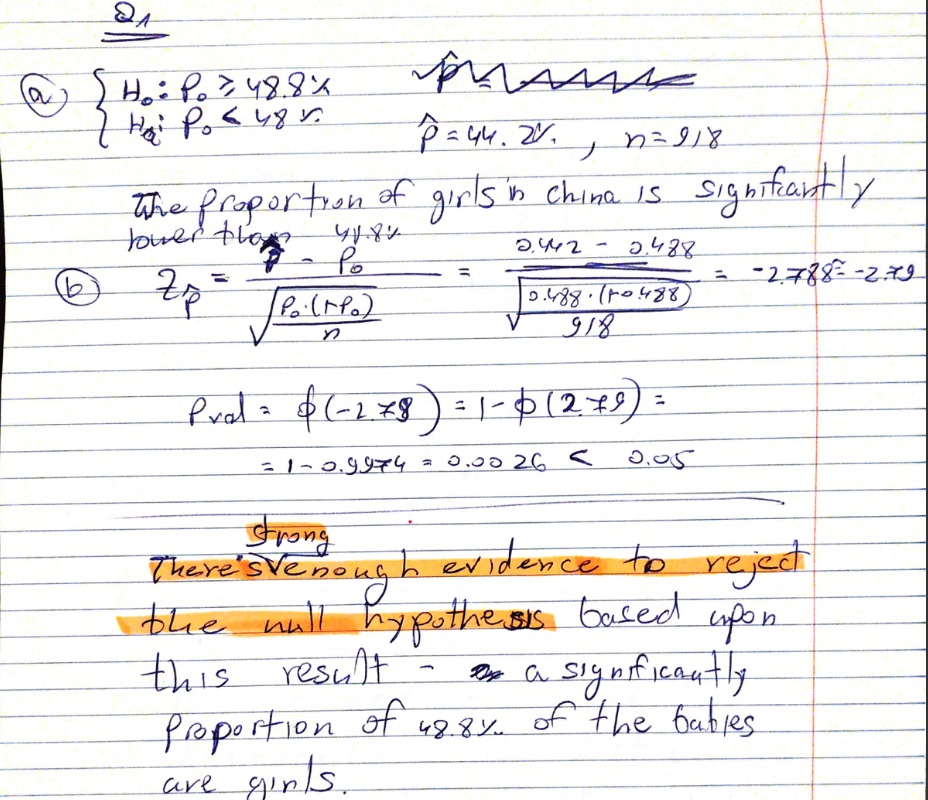 Q1
(a) { H₀: P₀ ≥ 48.8%
Hₐ: P₀ < 48%
p̂ = 44.2%, n = 918
The proportion of girls in China is significantly
lower than 48.8%
(b) Z_p̂ = (p̂ - P₀) / √(P₀·(1-P₀)/n) = (0.442 - 0.488) / √(0.488·(1-0.488)/918) = -2.788 ≈ -2.79
Pval = ϕ(-2.79) = 1-ϕ(2.79) =
= 1-0.9974 = 0.0026 < 0.05
strong
There's enough evidence to reject
the null hypothesis based upon
this result - a significantly
proportion of 48.8% of the babies
are girls.